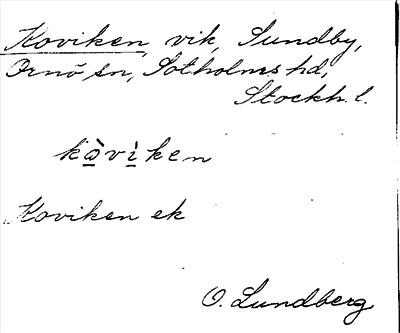 Koviken, vik, Sundby,
Ornö sn, Sotholms hd,
Stockh. l.
kòvìken
Koviken ek
O. Lundberg